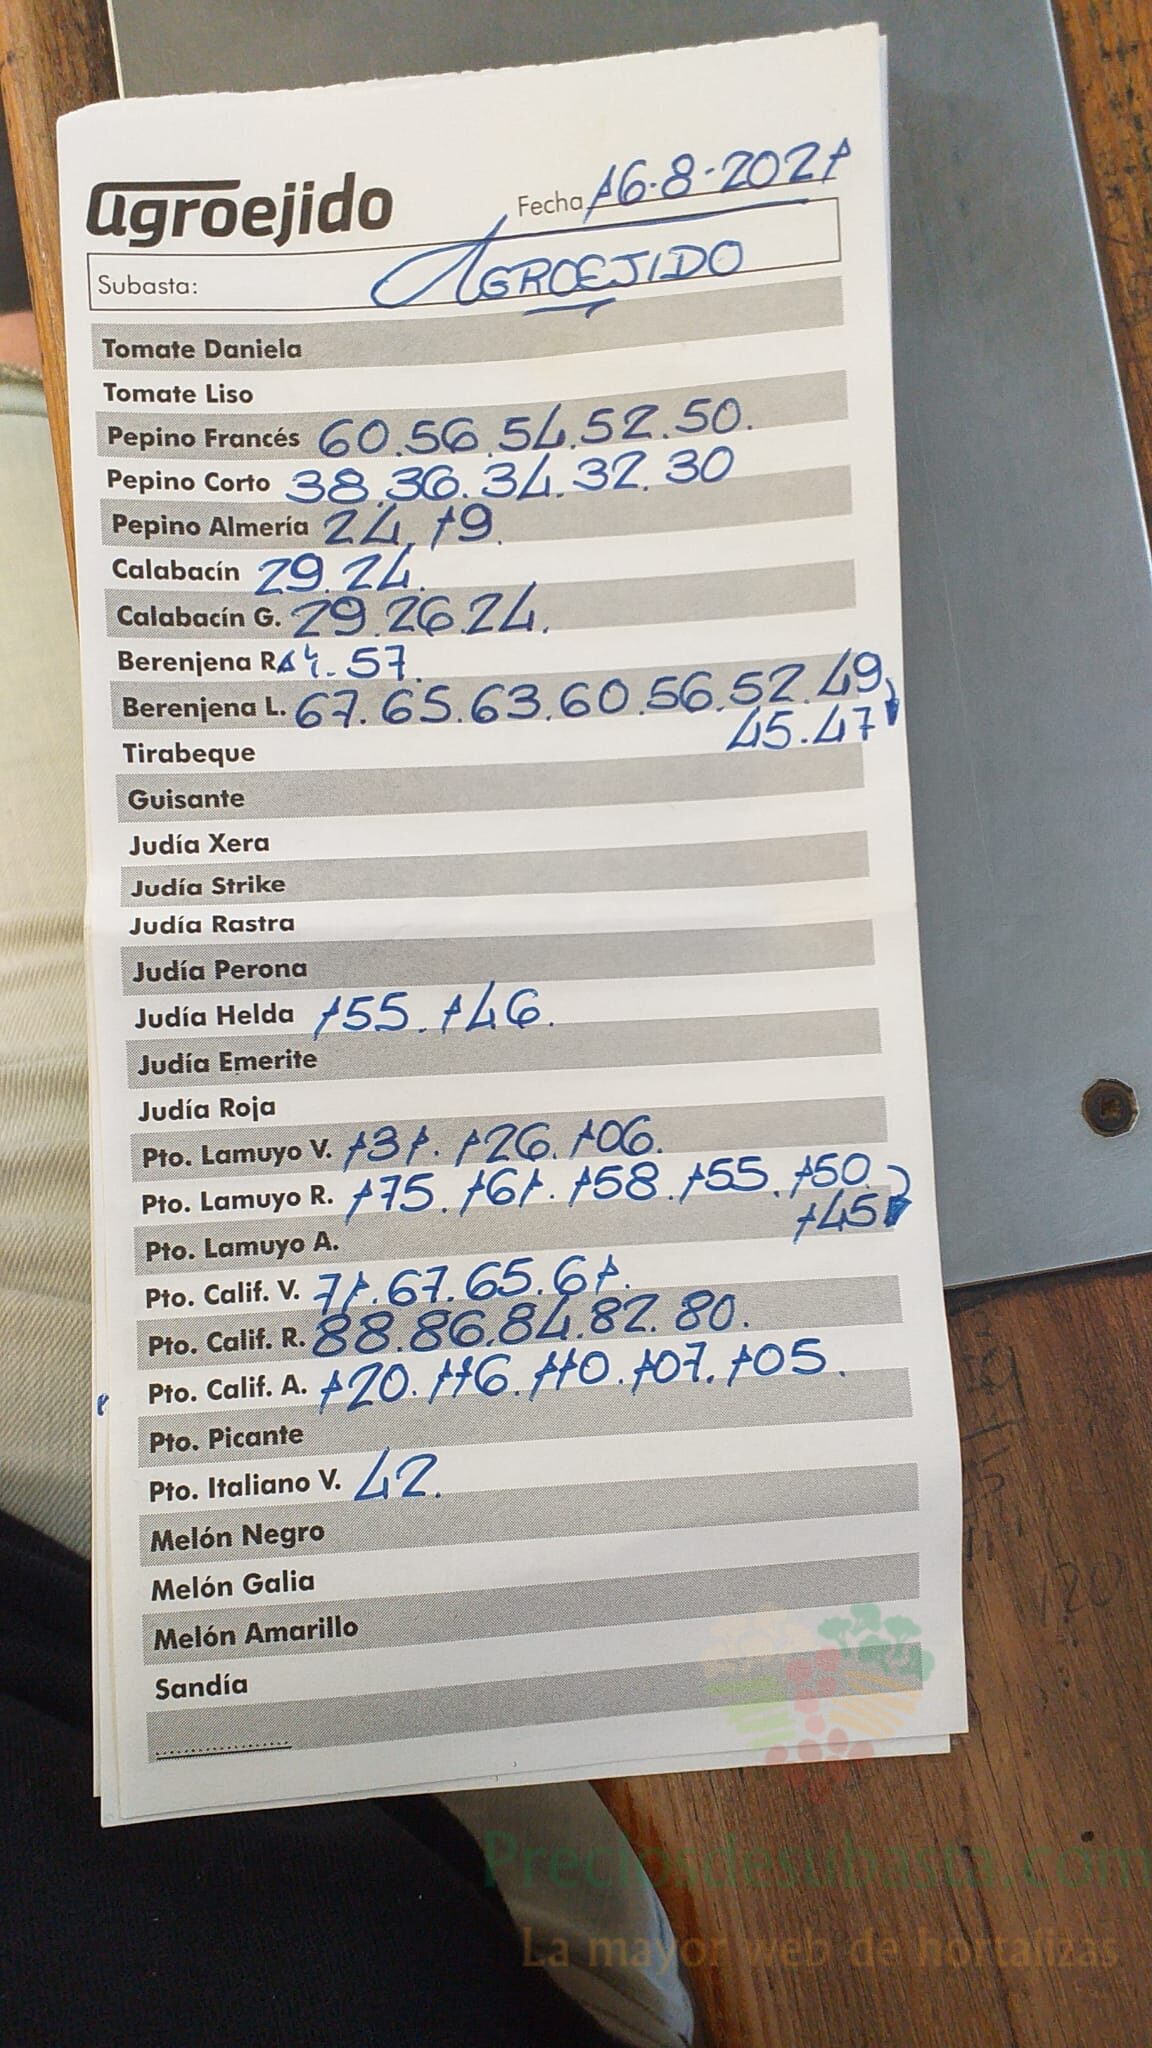 agroejido
Fecha 16-8-2021
Subasta: AGROEJIDO
Tomate Daniela
Tomate Liso
Pepino Francés 60.56.54.52.50.
Pepino Corto 38.36.34.32.30
Pepino Almería 24.19.
Calabacín 29.24.
Calabacín G. 29.26.24.
Berenjena R. 57.
Berenjena L. 67.65.63.60.56.52.49
45.47
Tirabeque
Guisante
Judía Xera
Judía Strike
Judía Rastra
Judía Perona
Judía Helda 155.146.
Judía Emerite
Judía Roja
Pto. Lamuyo V. 131.126.106.
Pto. Lamuyo R. 175.161.158.155.150
145
Pto. Lamuyo A.
Pto. Calif. V. 71.67.65.61.
Pto. Calif. R. 88.86.84.82.80.
Pto. Calif. A. 120.116.110.107.105.
Pto. Picante
Pto. Italiano V. 42.
Melón Negro
Melón Galia
Melón Amarillo
Sandía
Preciosdesubasta.com
La mayor web de hortalizas